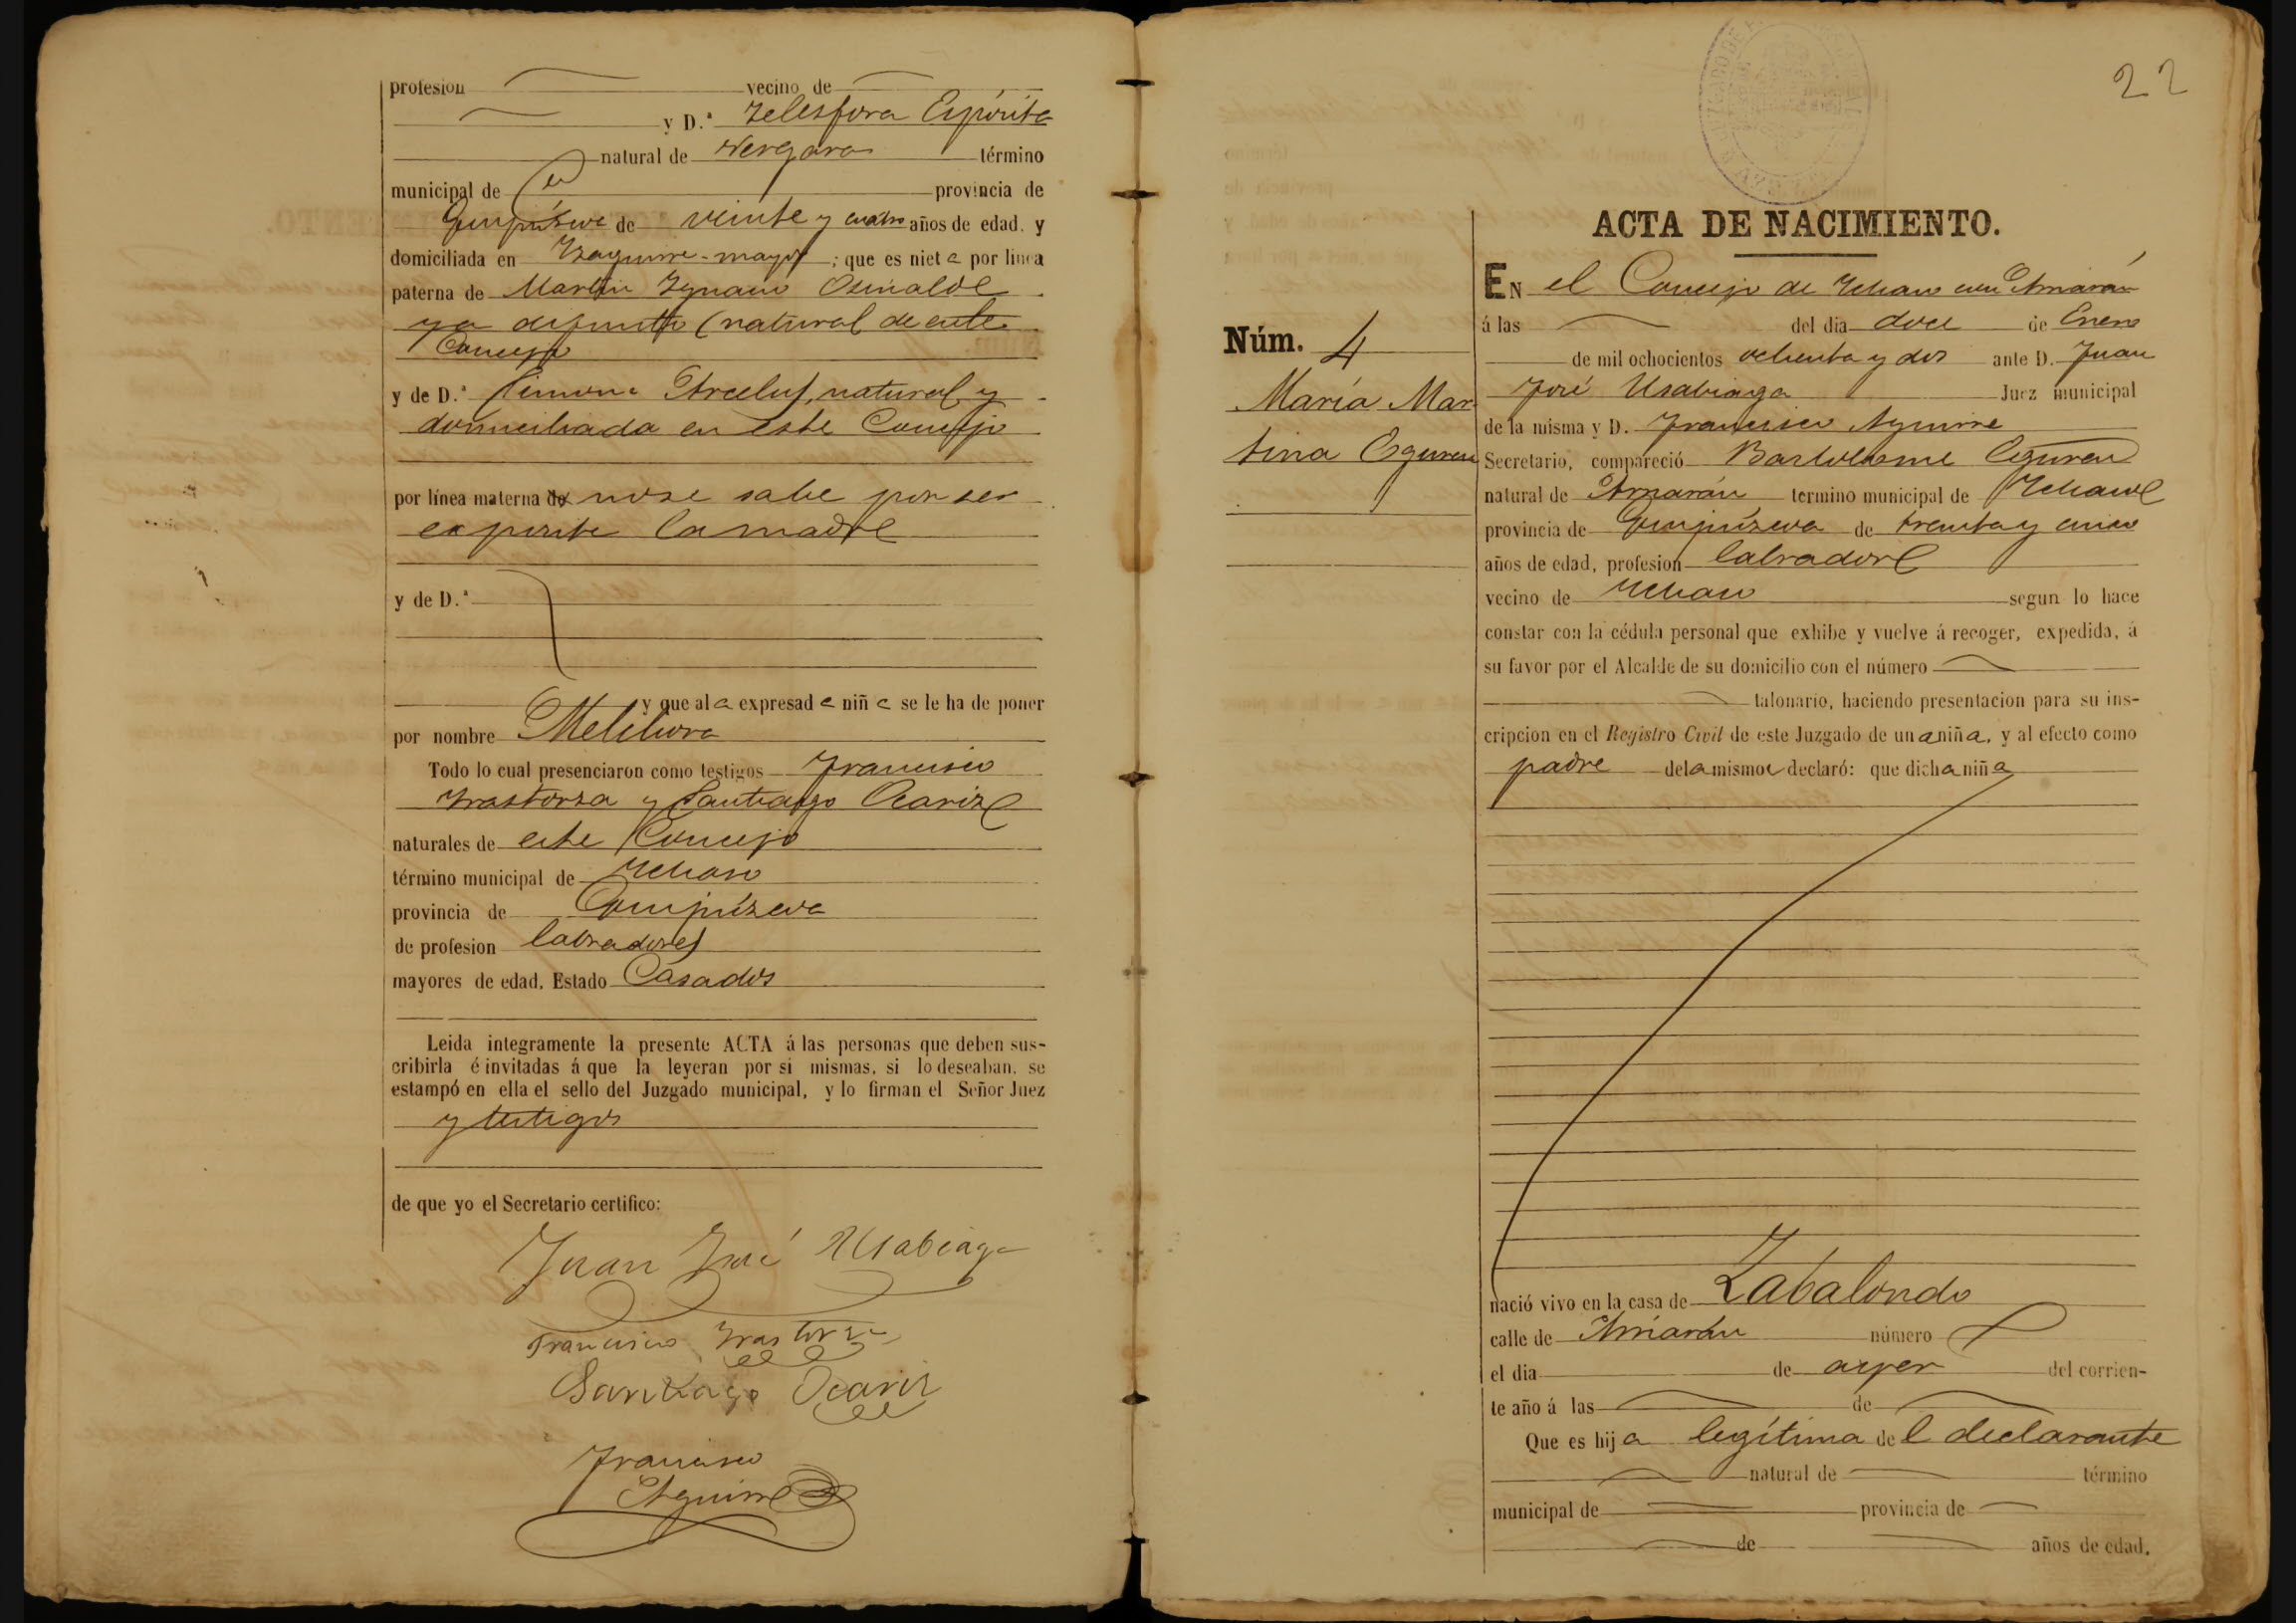 profesion vecino de
y D.ª Telesfora Espósita
natural de Vergara término
municipal de id provincia de
Guipúzcoa de veinte y cuatro años de edad, y
domiciliada en Yzaguirre-mayor; que es nieta por línea
paterna de Martin Ygnacio
ya difunto (natural de este
Concejo
y de D.ª Simona Arcelus, natural y
domiciliada en este Concejo
por línea materna de no se sabe por ser
exposita la madre
y de D.ª
y que al a expresad a niñ a se le ha de poner
por nombre Melchora
Todo lo cual presenciaron como testigos Francisco
Yrastorza y Santiago Ocariz
naturales de este Concejo
término municipal de Ychaso
provincia de Guipúzcoa
de profesion labradores
mayores de edad. Estado Casados
Leida integramente la presente ACTA á las personas que deben sus-
cribirla é invitadas á que la leyeran por si mismas, si lo deseaban, se
estampó en ella el sello del Juzgado municipal, y lo firman el Señor Juez
y testigos
de que yo el Secretario certifico:
Juan José Usabiaga
Francisco Yrastorza
Santiago Ocariz
Francisco
Aguirre
22
ACTA DE NACIMIENTO.
Núm. 4
María Mar-
tina Eguren
EN el Concejo de Ychaso con Arriarán
á las del dia doce de Enero
de mil ochocientos ochenta y dos ante D. Juan
José Usabiaga Juez municipal
de la misma y D. Francisco Aguirre
Secretario, compareció Bartolomé Eguren
natural de Arriarán termino municipal de Ychaso
provincia de Guipúzcoa de treinta y cinco
años de edad, profesion labrador
vecino de Ychaso segun lo hace
constar con la cédula personal que exhibe y vuelve á recoger, expedida, á
su favor por el Alcalde de su domicilio con el número
talonario, haciendo presentacion para su ins-
cripcion en el Registro Civil de este Juzgado de un a niña, y al efecto como
padre de la misma declaró: que dicha niña
nació vivo en la casa de Zabalondo
calle de Arriarán número
el dia de ayer del corrien-
te año á las de
Que es hija legítima de l declarante
natural de término
municipal de provincia de
de años de edad.